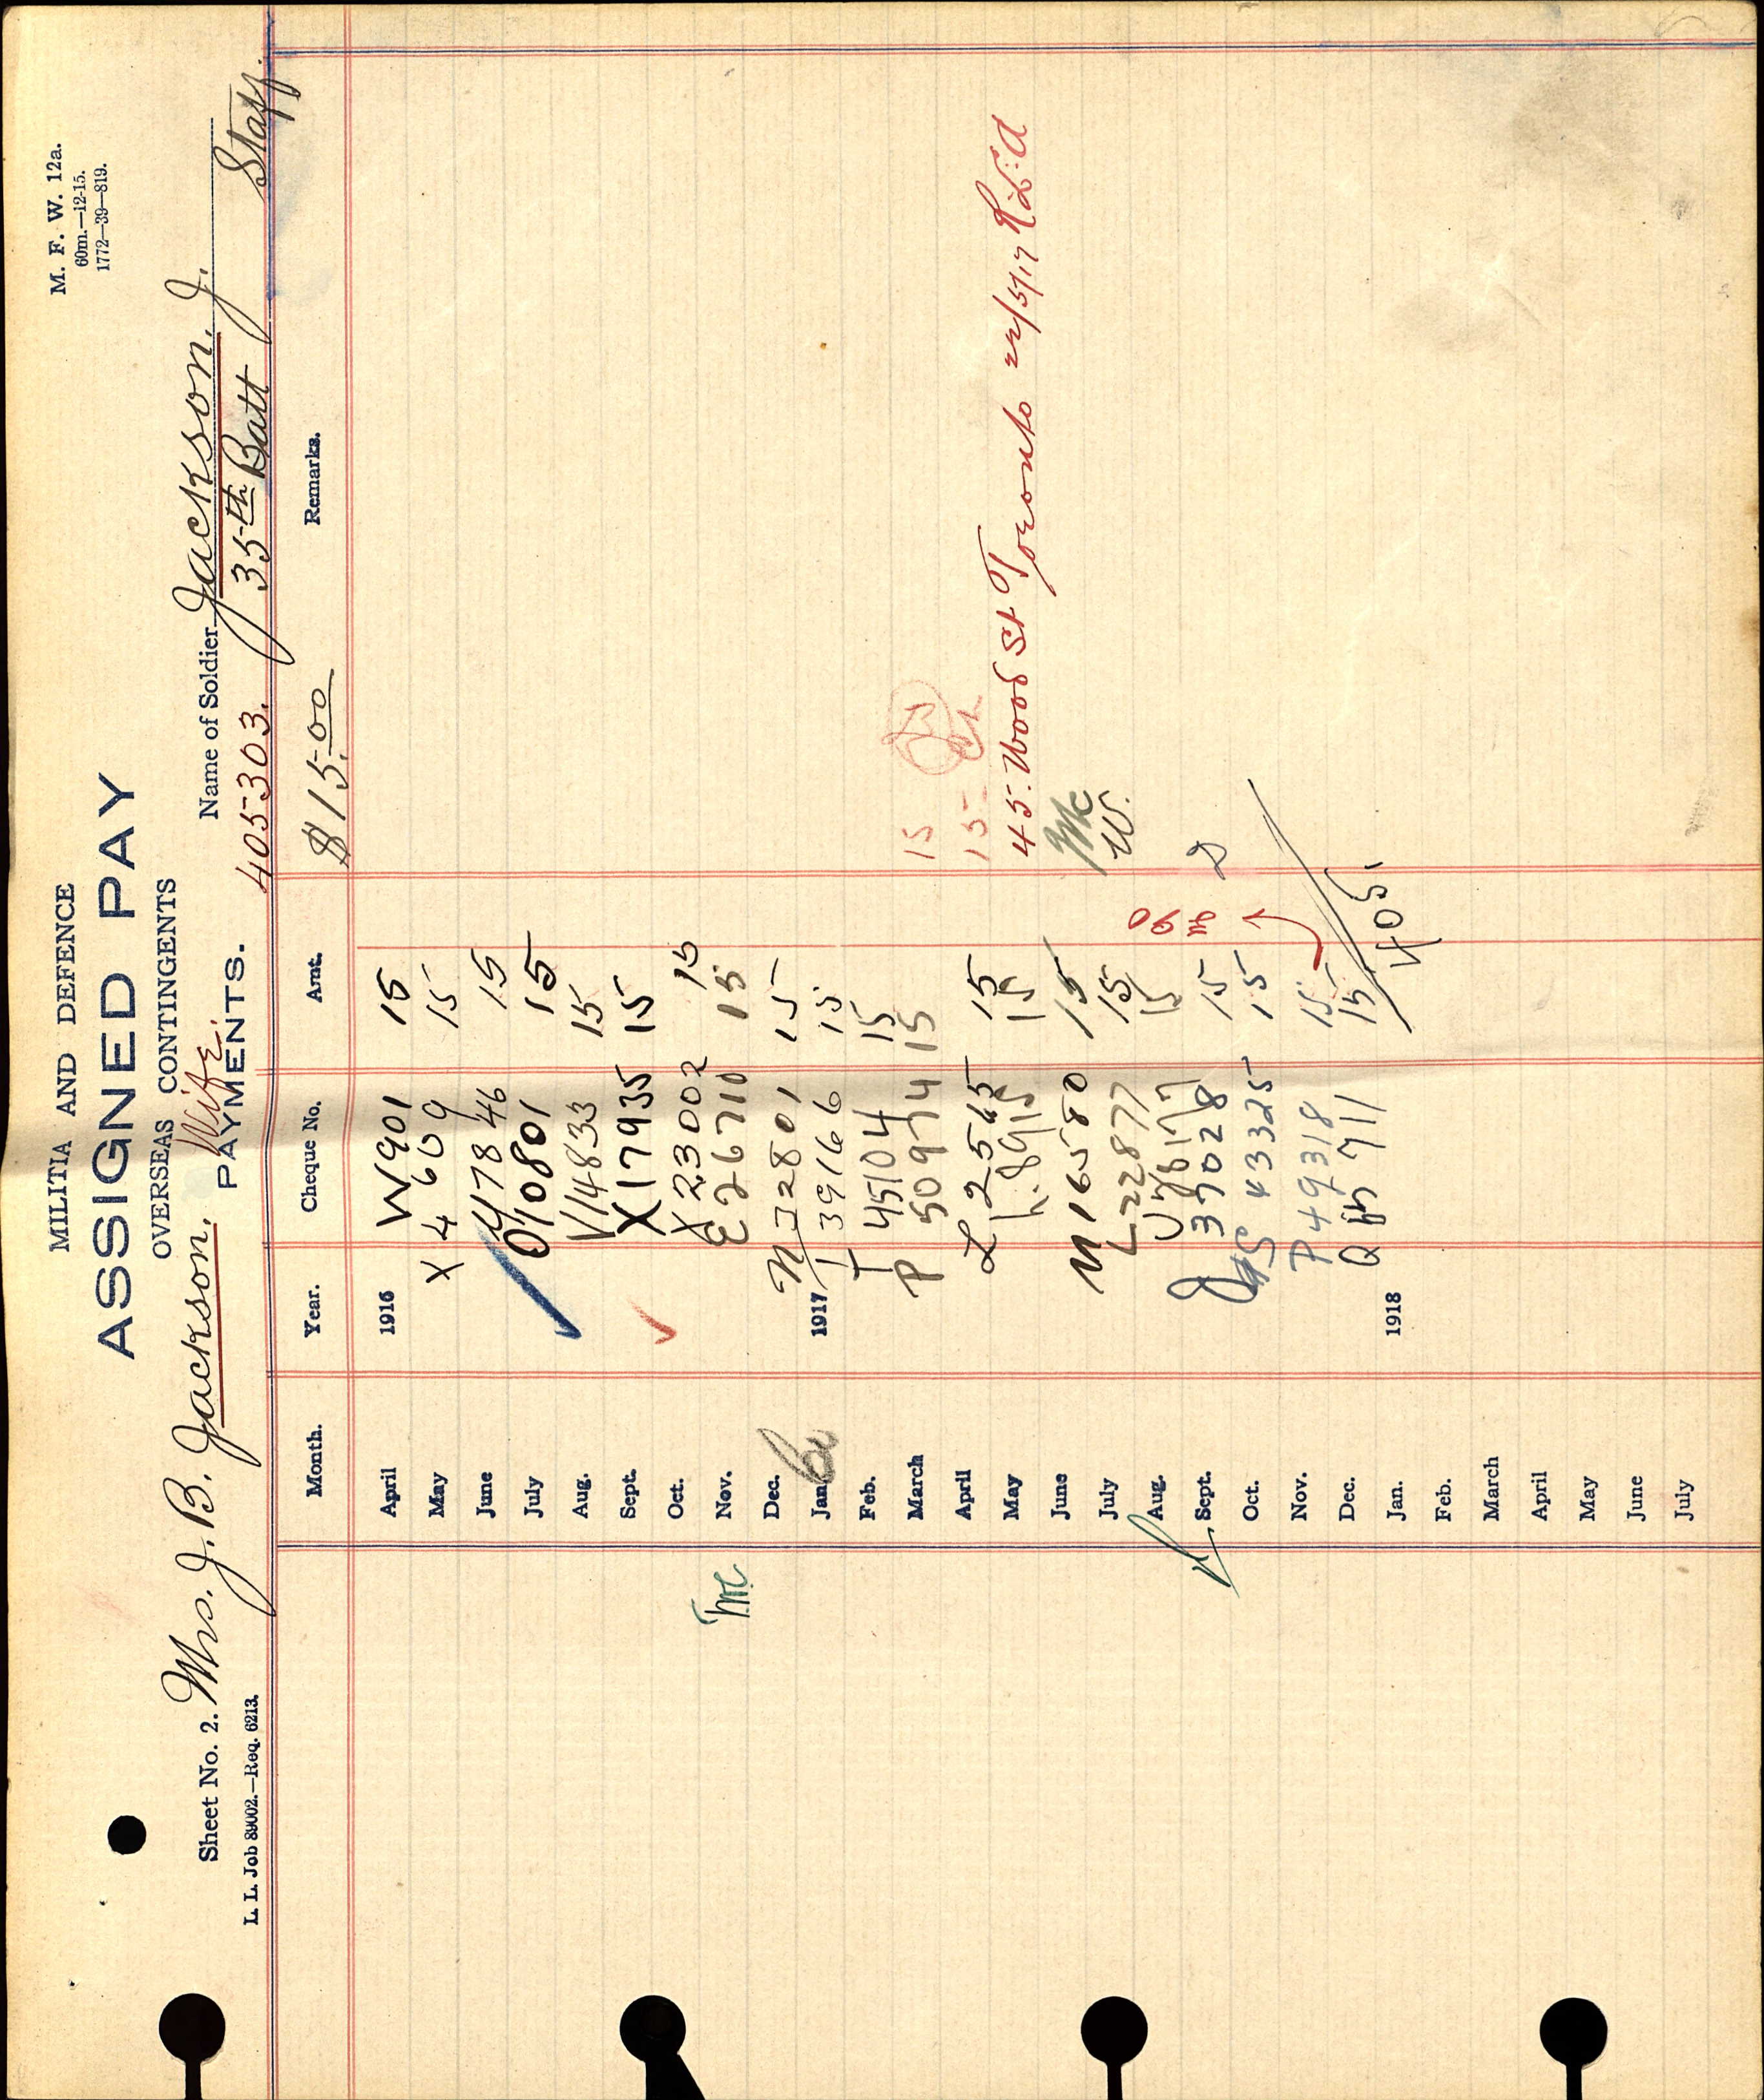 MILITIA AND DEFENCE
M. F. W. 12a.
60m.—12-15.
1772—39—819.
ASSIGNED PAY
OVERSEAS CONTINGENTS
Sheet No. 2. Mrs. J. B. Jackson. Wife. Name of Soldier Jackson. J.
PAYMENTS. 405303. 35th Batt Staff.
L. L. Job 89002.—Req. 6213.
Month. Year. Cheque No. Amt. $15.00 Remarks.
April 1916 W901 15
May X 4609 15
June 7846 15
July 010801 15
Aug. V14833 15
Sept. X17935 15
Oct. X 23002 15
Nov. E 26710 15
Dec. N 32801 15
Jan. 1917 39166 15
Feb. T 45104 15
March P 50974 15 15
April L 2545 15 15
May 15 45. Wood St Toronto 22/5/17
June M 16580 15 Mc
July L22877 15
Aug. 15
Sept. 37028 15
Oct. 43325 15
Nov. P 49318 15
Dec. 15
Jan. 1918 405
Feb.
March
April
May
June
July